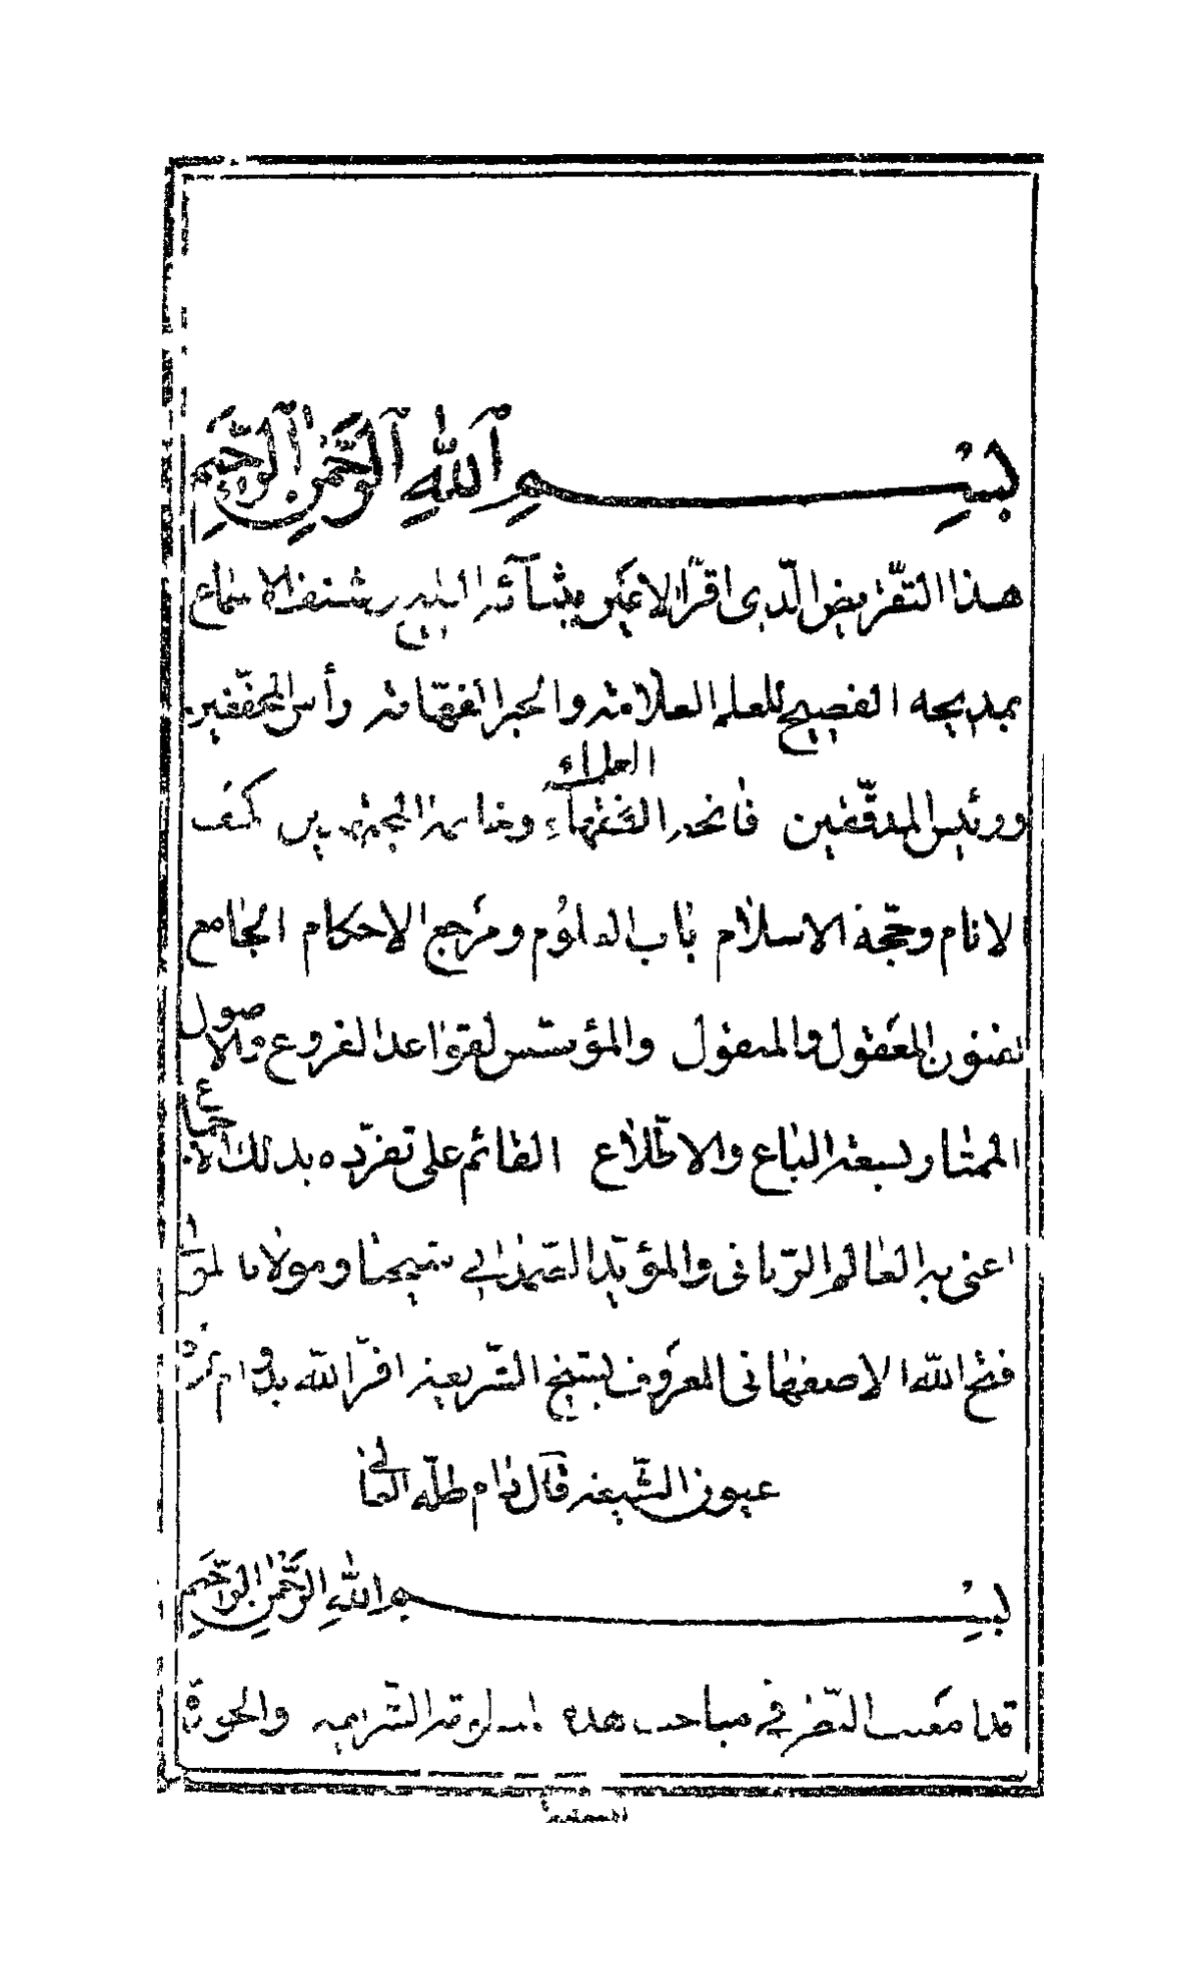 بِسْمِ اللهِ الرَّحْمٰنِ الرَّحِيمِ
هذا التقريض الّذي اقرّ الاعين بثنآئه البليغ وشنف الاسماع
بمديحه الفصيح للعلم العلامة والحبر الفهّامة رأس المحققين
ورئيس المدقّقين فاتحة الفقهآء العلماء وخاتمة المجتهدين كهف
الانام وحجّة الاسلام باب العلوم ومرجع الاحكام الجامع
لفنون المعقول والمنقول والمؤسّس لقواعد الفروع والاصول
الممتاز بسعة الباع والاطّلاع القائم على تفرّده بذلك الاجماع
اعنى به العالم الرّبانى والمؤيّد الصّمدانى شيخنا ومولانا
فتح الله الاصفهانى المعروف بشيخ الشّريعة اقرّ الله بدوام
عيون الشّيعة قال دام ظلّه العالي
بِسْمِ اللهِ الرَّحْمٰنِ الرَّحِيمِ
قد امعنت النّظر في مباحث هذه الشّريفه والحوزة